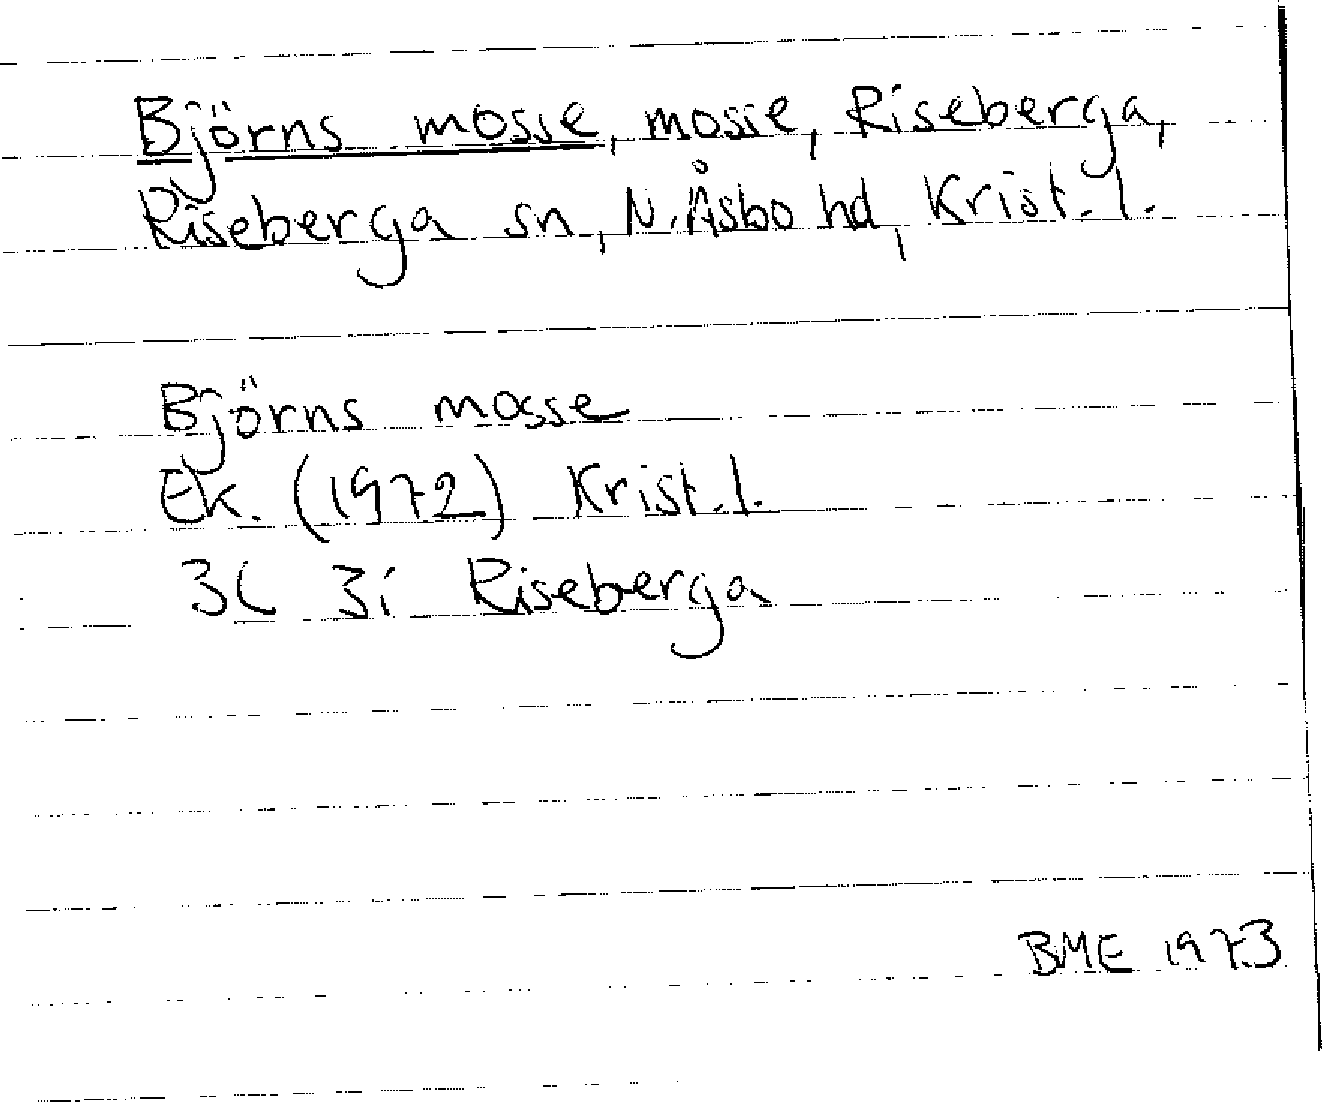 Björns mosse, mosse, Riseberga,
Riseberga sn, N. Åsbo hd, Krist. l.
Björns mosse
Ek. (1972) Krist. l.
3C 3i Riseberga
BME 1973